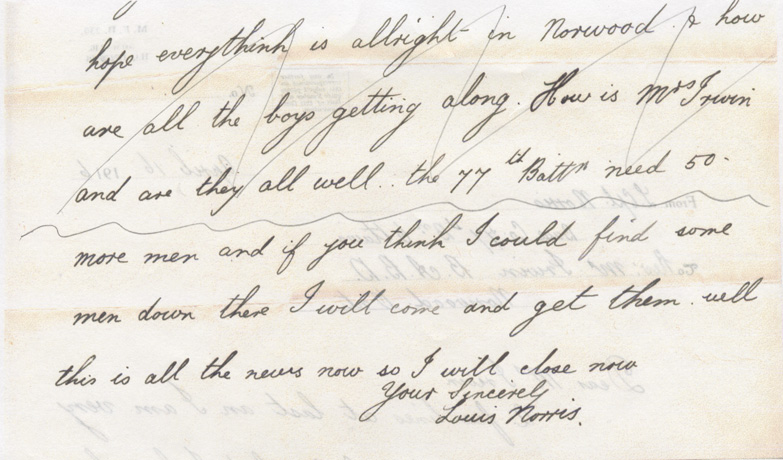 hope everythink is allright in Norwood. & how
are all the boys getting along. How is Mrs Irwin
and are they all well.. the 77th Battn need 50.
more men and if you think I could find some
men down there I will come and get them. well
this is all the news now so I will close now
Your Sincerely
Louis Norris.